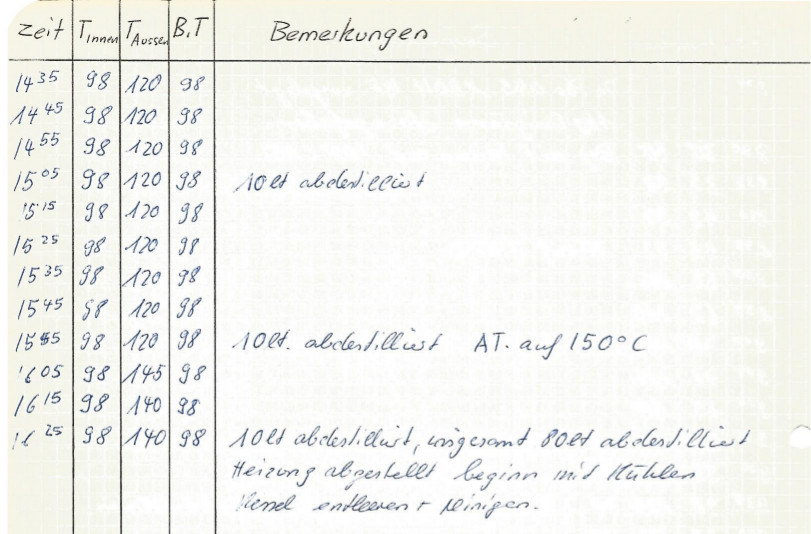 Zeit T Innen T Aussen B.T Bemerkungen
14 35 98 120 98
14 45 98 120 98
14 55 98 120 98
15 05 98 120 98 10lt abdestilliert
15 15 98 120 98
15 25 98 120 98
15 35 98 120 98
15 45 98 120 98
15 55 98 120 98 10lt. abdestilliert AT. auf 150°C
16 05 98 145 98
16 15 98 140 98
16 25 98 140 98 10lt abdestilliert, insgesamt 80lt abdestilliert
Heizung abgestellt beginn mit Kühlen
Kessel entleeren + reinigen.